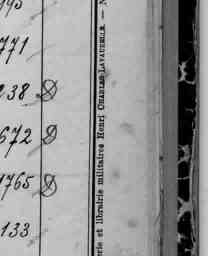 771
238
672
1765
133
rie et librairie militaires Henri CHARLES-LAVAUZELLE. —